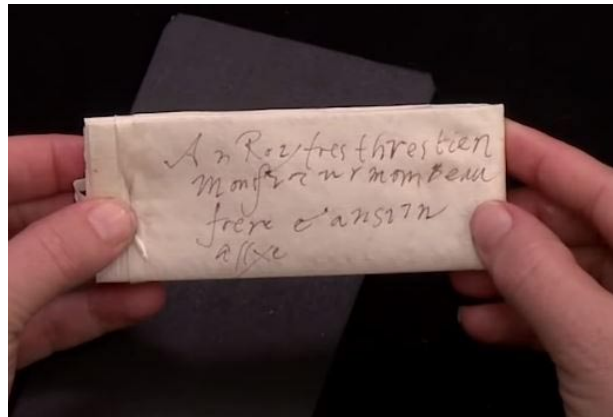 Au Roy tres threstien
monsieur mon beau
frere & ansien
allye